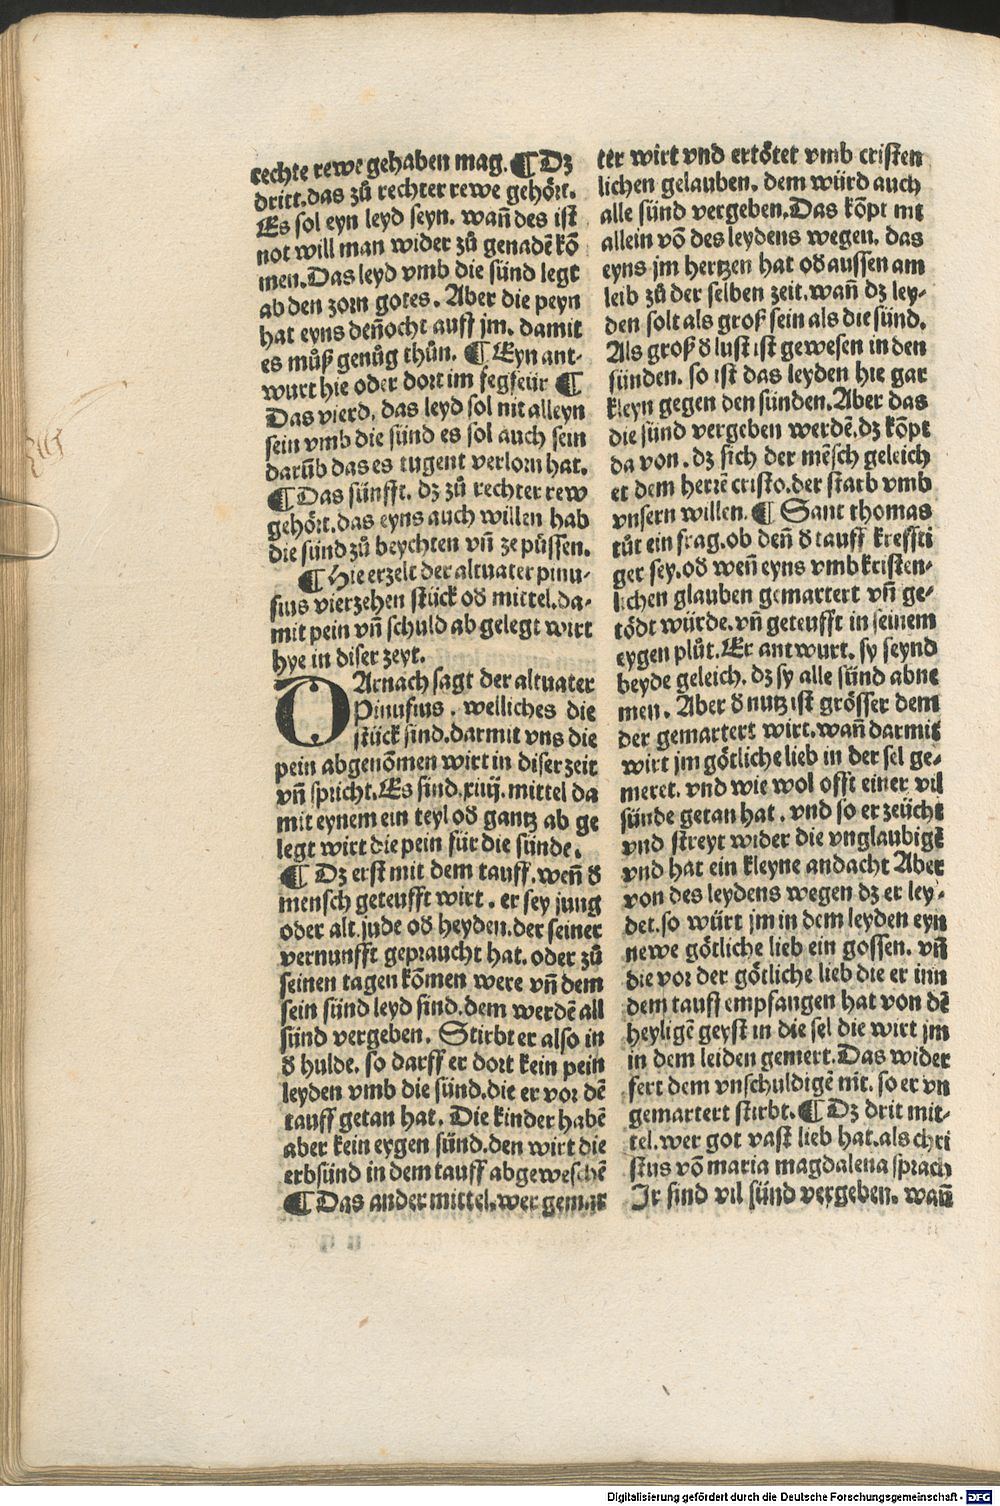 rechte rewe gehaben mag. ¶ Dz
dritt.das zů rechter rewe gehört.
Es sol eyn leyd seyn. wañ des ist
not will man wider zů genadē kō
men.Das leyd vmb die sünd legt
ab den zorn gotes. Aber die peyn
hat eyns deñocht auff jm. damit
es můß genůg thůn. ¶ Eyn ant-
wurt hie oder dort im fegfeür ¶
Das vierd, das leyd sol nit alleyn
sein vmb die sünd es sol auch sein
darūb das es tugent verlorn hat.
¶ Das fünfft. dz zů rechter rew
gehört.das eyns auch willen hab
die sünd zů beychten vñ ze püssen.
¶ Hie erzelt der altuater pinu-
fius vierzehen stück oď mittel.da-
mit pein vñ schuld ab gelegt wirt
hye in diser zeyt.
DArnach sagt der altuater
Pinufius . welliches die
stück sind.darmit vns die
pein abgenōmen wirt in diser zeit
vñ spricht.Es sind.xiiij. mittel da
mit eynem ein teyl oď gantz ab ge
legt wirt die pein für die sünde.
¶ Dz erst mit dem tauff.weñ ď
mensch geteufft wirt . er sey jung
oder alt.jude oď heyden.der seiner
vernunfft gepraucht hat. oder zů
seinen tagen kōmen were vñ dem
sein sünd leyd sind.dem werdē all
sünd vergeben. Stirbt er also in
ď hulde. so darff er dort kein pein
leyden vmb die sünd.die er vor dē
tauff getan hat. Die kinder habē
aber kein eygen sünd.den wirt die
erbsünd in dem tauff abgeweschē
¶ Das ander mittel.wer gemar
ter wirt vnd ertötet vmb cristen
lichen gelauben. dem würd auch
alle sünd vergeben.Das kōpt nit
allein vō des leydens wegen. das
eyns jm hertzen hat oď aussen am
leib zů der selben zeit.wañ dz ley-
den solt als groß sein als die sünd.
Als groß ď lust ist gewesen in den
sünden. so ist das leyden hie gar
kleyn gegen den sünden.Aber das
die sünd vergeben werdē.dz kōpt
da von . dz sich der mēsch geleich
et dem herrē cristo.der starb vmb
vnsern willen. ¶ Sant thomas
tůt ein frag.ob deñ ď tauff kreffti
ger sey.oď weñ eyns vmb kristen-
lichen glauben gemartert vñ ge-
tödt würde.vñ geteufft in seinem
eygen plůt.Er antwurt. sy seynd
beyde geleich. dz sy alle sünd abne
men. Aber ď nutz ist grösser dem
der gemartert wirt.wañ darmit
wirt jm götliche lieb in der sel ge-
meret. vnd wie wol offt einer vil
sünde getan hat . vnd so er zeücht
vnd streyt wider die vnglaubigē
vnd hat ein kleyne andacht Aber
von des leydens wegen dz er ley-
det.so würt jm in dem leyden eyn
newe götliche lieb ein gossen. vñ
die vor der götliche lieb die er inn
dem tauff empfangen hat von dē
heyligē geyst in die sel die wirt jm
in dem leiden gemert.Das wider
fert dem vnschuldigē nit. so er vn
gemartert stirbt. ¶ Dz drit mit-
tel.wer got vast lieb hat.als chri
stus vō maria magdalena sprach
Ir sind vil sünd vergeben. wañ
Digitalisierung gefördert durch die Deutsche Forschungsgemeinschaft - DFG